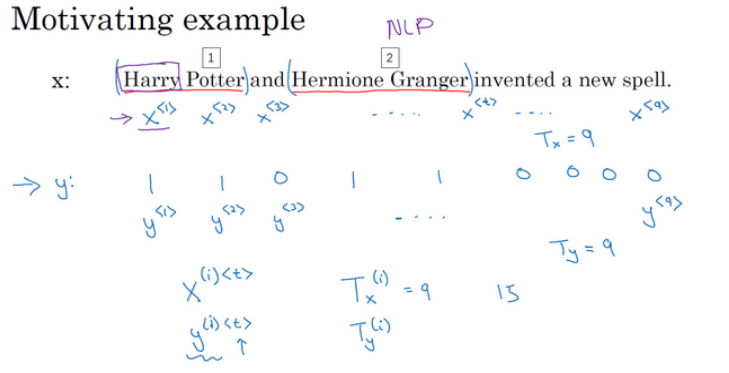 Motivating example NLP
1 2
x: Harry Potter and Hermione Granger invented a new spell.
→ x<1> x<2> x<3> ---- x<t> ---- x<9>
Tx = 9
→ y: 1 1 0 1 1 0 0 0 0
y<1> y<2> y<3> ---- y<9>
Ty = 9
x(i)<t> Tx(i) = 9 15
y(i)<t> ↑ Ty(i)